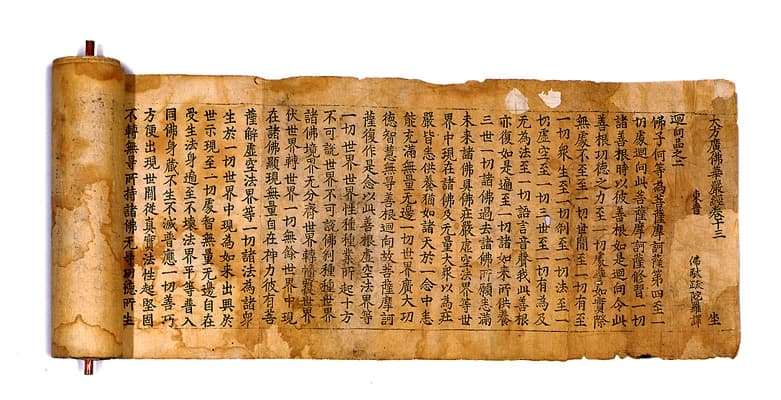 大方廣佛華嚴經卷十三 坐
迴向品之二 東晉 佛馱跋陀羅譯
佛子何等為菩薩摩訶薩第四至一
切處迴向此菩薩摩訶薩修習一切
諸善根時以彼善根如是迴向令此
善根功德之力至一切處譬如實際
無處不有至一切世間至一切有至
一切衆生至一切刹至一切法至一
切虛空至一切三世至一切有為及
无為法至一切語言音聲我此善根
亦復如是遍至一切諸如來所供養
三世一切諸佛過去諸佛所願悉滿
未來諸佛具佛莊嚴虛空法界等世
界中現在諸佛及无量大衆以為莊
嚴皆悉供養猶如諸天於一念中悉
能充滿無量无邊一切世界廣大功
德智慧無导善根迴向故菩薩摩訶
薩復作是念以此善根虛空法界等
一切世界世界性種種業所起十方
不可說世界不可說佛刹種種世界
諸佛境界无分齊世界轉世界
伏世界轉世界一切無餘世界中現
在諸佛顯現無量自在神力彼有菩
薩解虛空法界等一切諸法為諸衆
生於一切世界中現為如來出興於
世示現至一切處智無量无邊自在
受生法身遍至不壞法界平等普入
同佛身藏不生不滅普應一切善巧
方便出現世間從真實法性起堅固
不轉無导所持諸佛无导功德所生